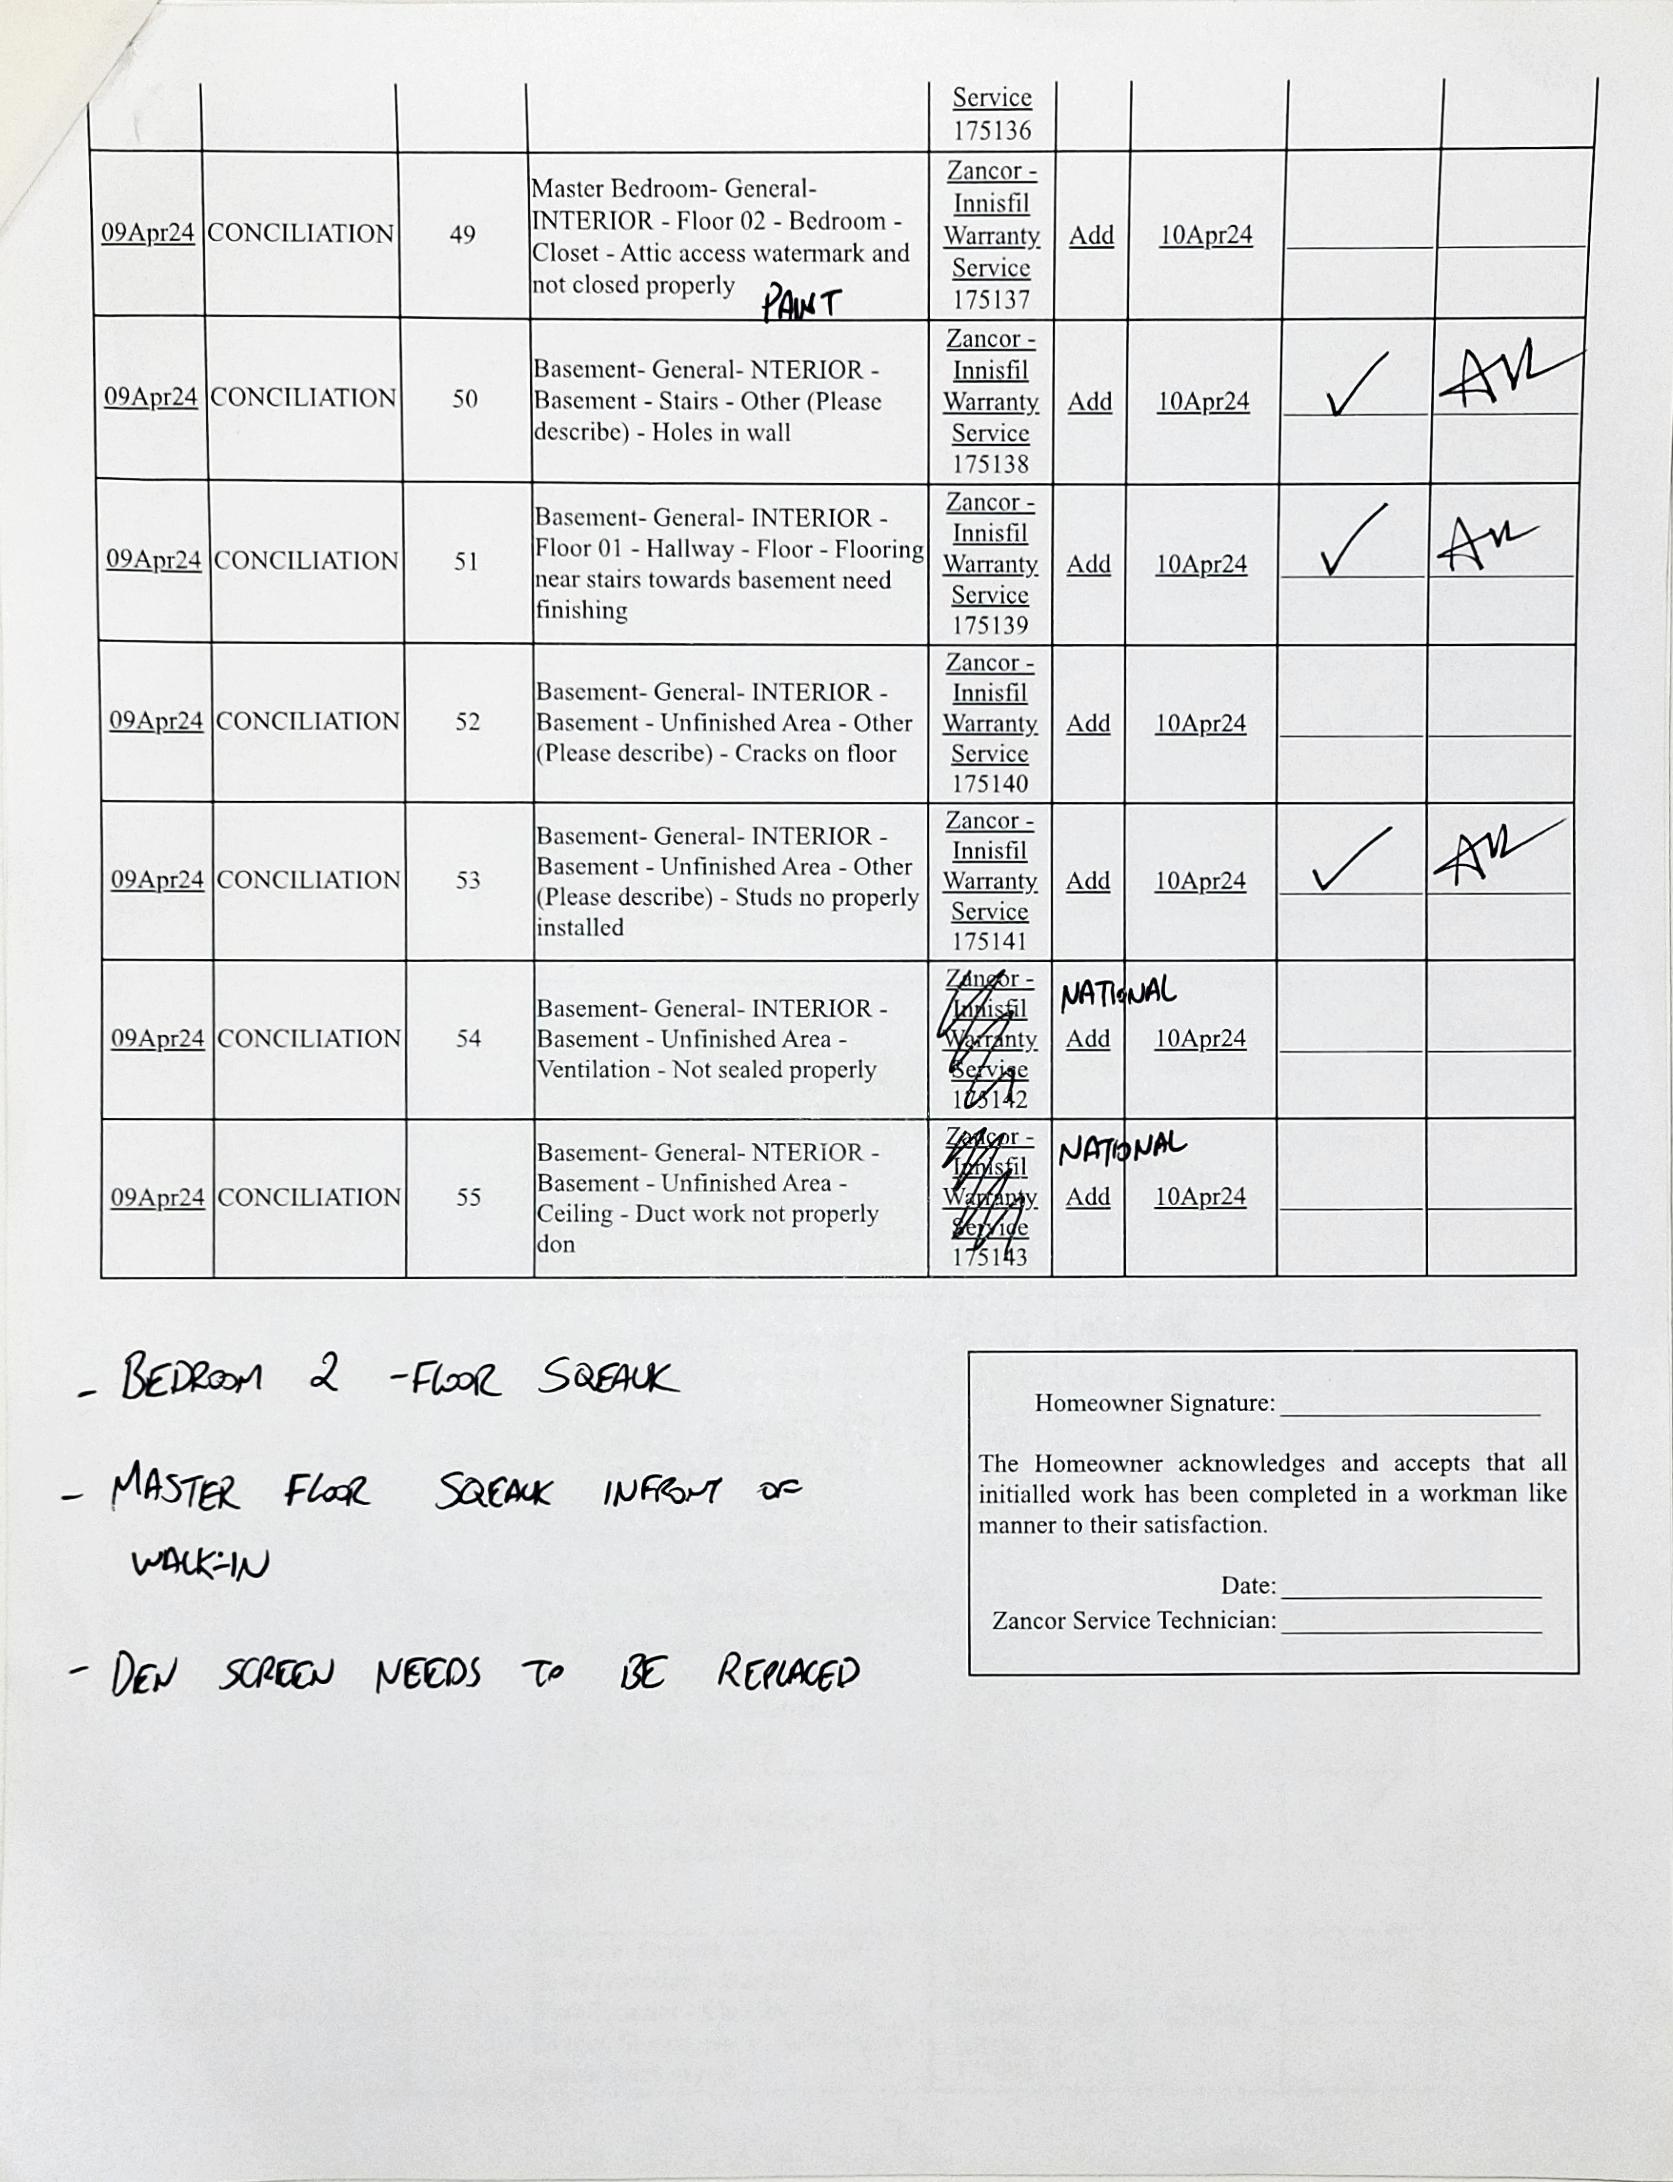 Service
175136
09Apr24 CONCILIATION 49 Master Bedroom- General-
INTERIOR - Floor 02 - Bedroom -
Closet - Attic access watermark and
not closed properly PAINT
Zancor -
Innisfil
Warranty
Service
175137
Add 10Apr24
09Apr24 CONCILIATION 50 Basement- General- NTERIOR -
Basement - Stairs - Other (Please
describe) - Holes in wall
Zancor -
Innisfil
Warranty
Service
175138
Add 10Apr24 ✓
09Apr24 CONCILIATION 51 Basement- General- INTERIOR -
Floor 01 - Hallway - Floor - Flooring
near stairs towards basement need
finishing
Zancor -
Innisfil
Warranty
Service
175139
Add 10Apr24 ✓
09Apr24 CONCILIATION 52 Basement- General- INTERIOR -
Basement - Unfinished Area - Other
(Please describe) - Cracks on floor
Zancor -
Innisfil
Warranty
Service
175140
Add 10Apr24
09Apr24 CONCILIATION 53 Basement- General- INTERIOR -
Basement - Unfinished Area - Other
(Please describe) - Studs no properly
installed
Zancor -
Innisfil
Warranty
Service
175141
Add 10Apr24 ✓
09Apr24 CONCILIATION 54 Basement- General- INTERIOR -
Basement - Unfinished Area -
Ventilation - Not sealed properly
Zancor -
Innisfil
Warranty
Service
175142
NATIONAL
Add 10Apr24
09Apr24 CONCILIATION 55 Basement- General- NTERIOR -
Basement - Unfinished Area -
Ceiling - Duct work not properly
don
Zancor -
Innisfil
Warranty
Service
175143
NATIONAL
Add 10Apr24
- BEDROOM 2 - FLOOR SQEAUK
- MASTER FLOOR SQEAUK INFRONT OF
WALK-IN
- DEN SCREEN NEEDS TO BE REPLACED
Homeowner Signature:
The Homeowner acknowledges and accepts that all
initialled work has been completed in a workman like
manner to their satisfaction.
Date:
Zancor Service Technician: